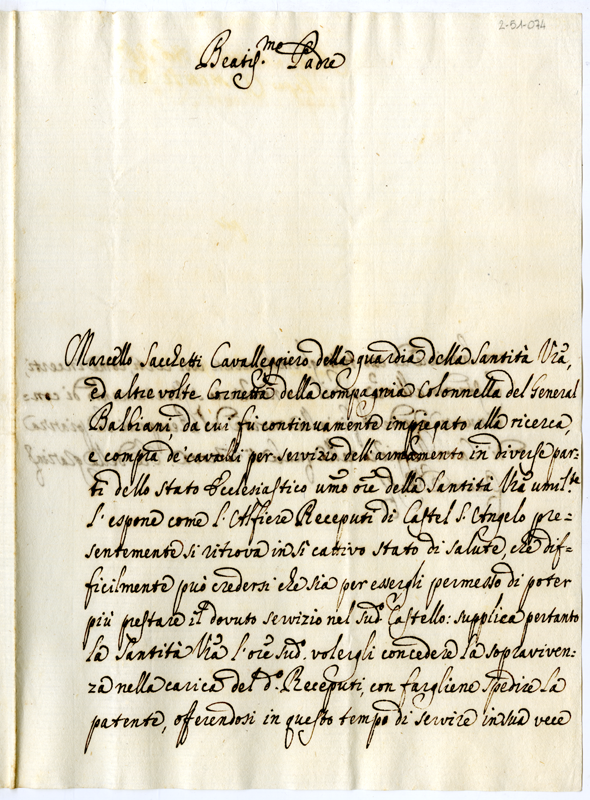 2-51-074
Beatis.mo Padre
Marcello Sacchetti Cavalleggiero della guardia della Santità Vrã,
ed altre volte Cornetta della compagnia Colonnella del General
Balbiani, da cui fù continuamente impiegato alla ricerca,
e compra de' cavalli per servizio dell'armamento in diverse par=
ti dello stato Ecclesiastico umõ orẽ della Santità Vrã umil.te
l'espone come l'Alfiere Receputi di Castel S. Angelo pre=
sentemente si ritrova in sì cattivo stato di salute, che dif=
ficilmente può credersi che sia per essergli permesso di poter
più prestare il dovuto servizio nel sud.o Castello: supplica pertanto
la Santità Vrã l'orẽ sud.o volergli concedere la sopraviven=
za nella carica del d.o Receputi, con fargliene spedire la
patente, offerendosi in questo tempo di servire in sua vece